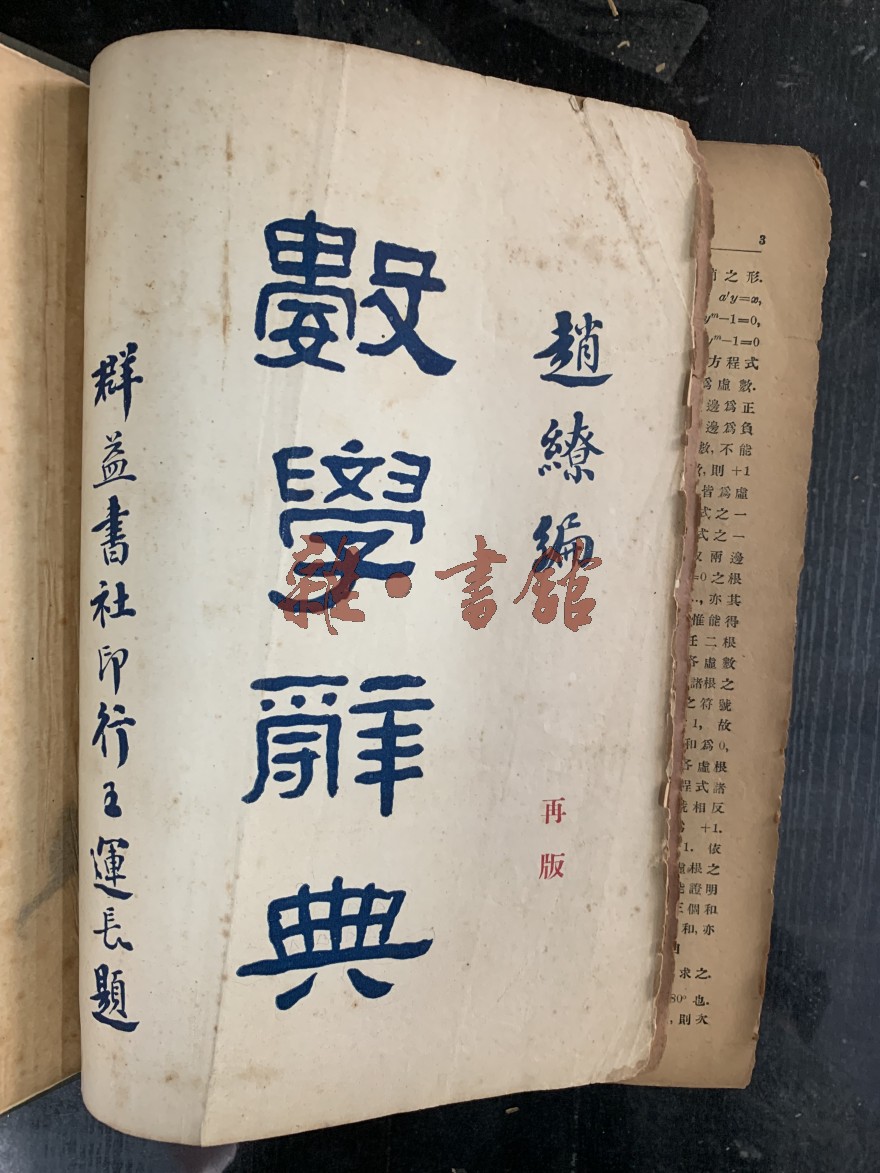 趙繚編
再版
數學辭典
群益書社印行王運長題
雜·書館
3
之形.
a'y=x,
yᵐ−1=0,
yᵐ−1=0
方程式
爲虛數.
邊爲正
邊爲負
數,不能
則+1
皆爲虛
式之一
式之一
兩邊
=0之根
亦其
惟能得
任二根
各虛數
諸根之
之符號
1, 故
和爲0,
各虛根
程式諸
相反
+1.
1. 依
虛根之
證明
三個和
和,亦
求之.
80°也.
,則次